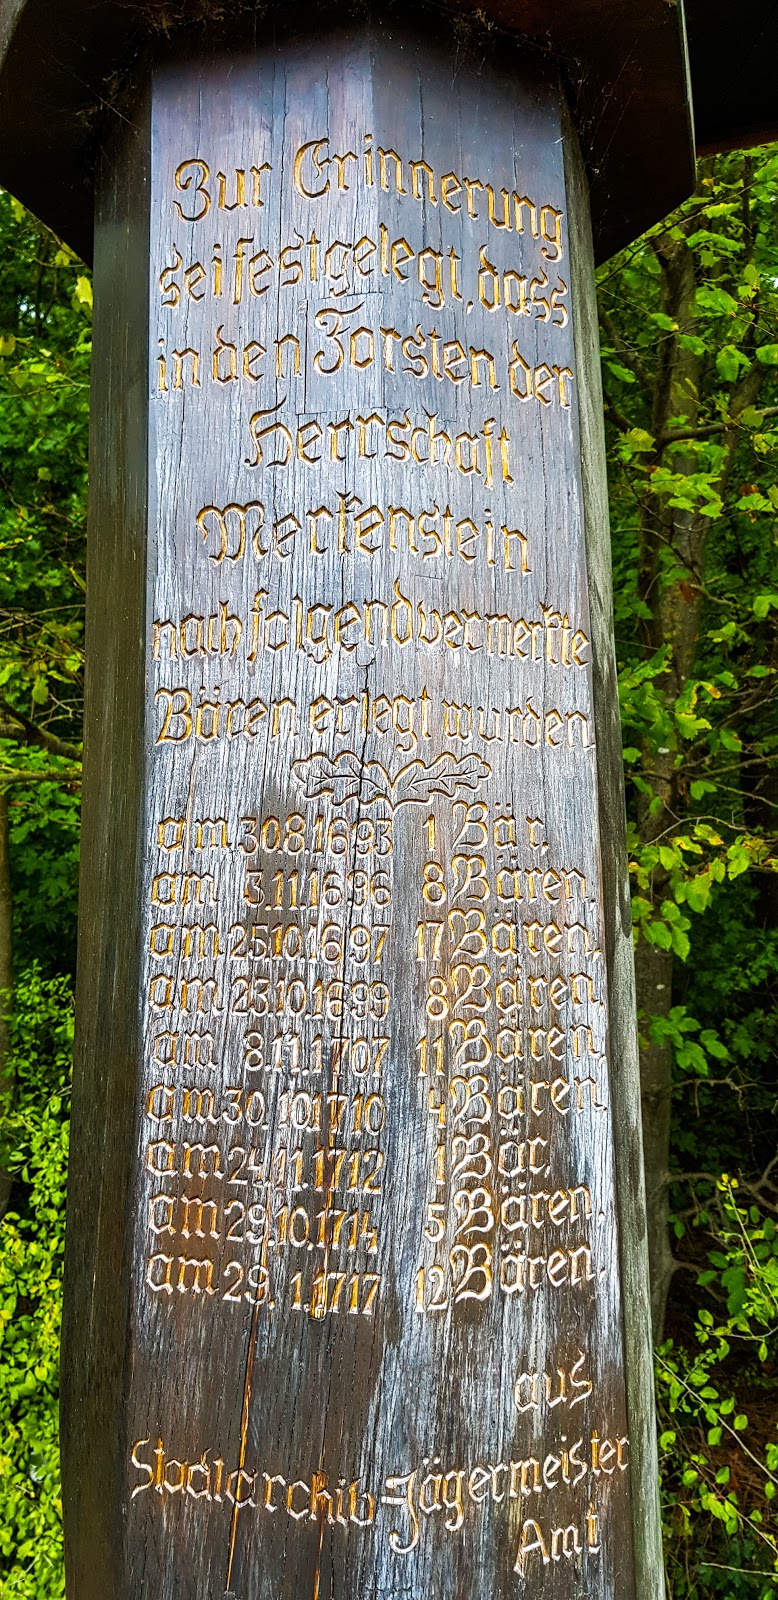 Zur Erinnerung
sei festgelegt, dass
in den Forsten der
Herrschaft
Merkenstein
nachfolgend vermerkte
Bären erlegt wurden.
am 30.8.1693 1 Bär,
am 3.11.1696 8 Bären,
am 25.10.1697 17 Bären,
am 23.10.1699 8 Bären,
am 8.11.1707 11 Bären,
am 30.10.1710 4 Bären,
am 24.11.1712 1 Bär,
am 29.10.1714 5 Bären,
am 29.1.1717 12 Bären.
aus
Stadtarchiv-Jägermeister
Amt